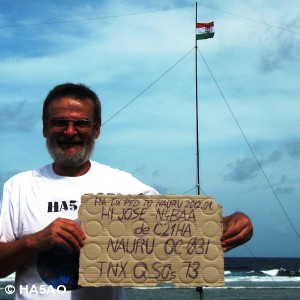 HA5
HA DX PED TO NAURU 2012.01.
HI JOSE - N4BAA
de C21HA
NAURU OC-031
TNX QSOs 73
© HA5AO